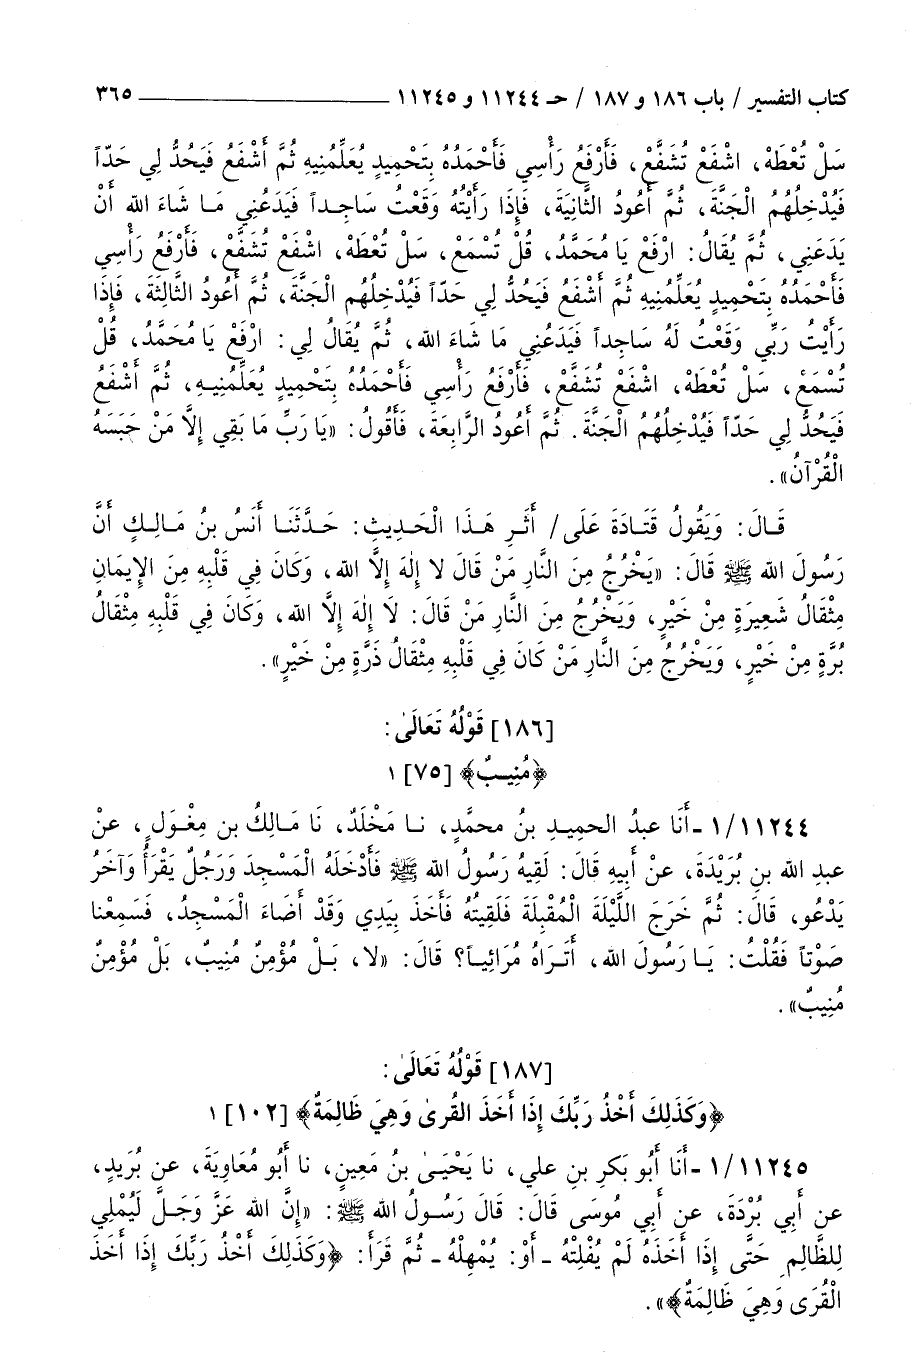 كتاب التفسير / باب ١٨٦ و ١٨٧ / حـ ١١٢٤٤ و ١١٢٤٥ ٣٦٥
سَلْ تُعْطَهْ، اشْفَعْ تُشَفَّعْ، فَأَرْفَعُ رَأْسِي فَأَحْمَدُهُ بِتَحْمِيدٍ يُعَلِّمُنِيهِ ثُمَّ أَشْفَعُ فَيَحُدُّ لِي حَدّاً
فَيُدْخِلُهُمُ الْجَنَّةَ، ثُمَّ أَعُودُ الثَّانِيَةَ، فَإِذَا رَأَيْتُهُ وَقَعْتُ سَاجِداً فَيَدَعُنِي مَا شَاءَ الله أَنْ
يَدَعَنِي، ثُمَّ يُقَالُ: ارْفَعْ يَا مُحَمَّدُ، قُلْ تُسْمَعْ، سَلْ تُعْطَهْ، اشْفَعْ تُشَفَّعْ، فَأَرْفَعُ رَأْسِي
فَأَحْمَدُهُ بِتَحْمِيدٍ يُعَلِّمُنِيهِ ثُمَّ أَشْفَعُ فَيَحُدُّ لِي حَدّاً فَيُدْخِلُهُم الْجَنَّةَ، ثُمَّ أَعُودُ الثَّالِثَةَ، فَإِذَا
رَأَيْتُ رَبِّي وَقَعْتُ لَهُ سَاجِداً فَيَدَعُنِي مَا شَاءَ الله، ثُمَّ يُقَالُ لِي: ارْفَعْ يَا مُحَمَّدُ، قُلْ
تُسْمَعْ، سَلْ تُعْطَهْ، اشْفَعْ تُشَفَّعْ، فَأَرْفَعُ رَأْسِي فَأَحْمَدُهُ بِتَحْمِيدٍ يُعَلِّمُنِيهِ، ثُمَّ أَشْفَعُ
فَيَحُدُّ لِي حَدّاً فَيُدْخِلُهُمُ الْجَنَّةَ. ثُمَّ أَعُودُ الرَّابِعَةَ، فَأَقُولُ: «يَا رَبِّ مَا بَقِي إِلَّا مَنْ حَبَسَهُ
الْقُرْآنُ».
قَالَ: وَيَقُولُ قَتَادَةَ عَلَى/ أَثَرِ هَذَا الْحَدِيثِ: حَدَّثَنَا أَنَسُ بنُ مَالِكٍ أَنَّ
رَسُولَ الله ﷺ قَالَ: «يَخْرُجُ مِنَ النَّارِ مَنْ قَالَ لا إِلَهَ إِلَّا الله، وَكَانَ فِي قَلْبِهِ مِنَ الإِيمَانِ
مِثْقَالُ شَعِيرَةٍ مِنْ خَيْرٍ، وَيَخْرُجُ مِنَ النَّارِ مَنْ قَالَ: لَا إِلٰهَ إِلَّا الله، وَكَانَ فِي قَلْبِهِ مِثْقَالُ
بُرَّةٍ مِنْ خَيْرٍ، وَيَخْرُجُ مِنَ النَّارِ مَنْ كَانَ فِي قَلْبِهِ مِثْقَالُ ذَرَّةٍ مِنْ خَيْرٍ».
[١٨٦] قَوْلُهُ تَعَالَىٰ:
﴿مُنِيبٌ﴾ [٧٥] ١
١/١١٢٤٤ - أَنَا عبدُ الحميدِ بنُ محمَّدٍ، نا مَخْلَدٌ، نَا مَالِكُ بن مِغْوَلٍ، عنْ
عبدِ الله بنِ بُرَيْدَةَ، عنْ أبيهِ قَالَ: لَقِيَهُ رَسُولُ الله ﷺ فَأَدْخَلَهُ الْمَسْجِدَ وَرَجُلٌ يَقْرَأُ وَآخَرُ
يَدْعُو، قَالَ: ثُمَّ خَرَجَ اللَّيْلَةَ الْمُقْبِلَةَ فَلَقِيتُهُ فَأَخَذَ بِيَدِي وَقَدْ أَضَاءَ الْمَسْجِدُ، فَسَمِعْنا
صَوْتاً فَقُلْتُ: يَا رَسُولَ الله، أَتَرَاهُ مُرَائِياً؟ قَالَ: «لا، بَلْ مُؤْمِنٌ مُنِيبٌ، بَلْ مُؤْمِنٌ
مُنِيبٌ».
[١٨٧] قَوْلُهُ تَعَالَىٰ:
﴿وَكَذَلِكَ أَخْذُ رَبِّكَ إِذَا أَخَذَ القُرىٰ وَهِيَ ظَالِمَةٌ﴾ [١٠٢] ١
١/١١٢٤٥ - أَنَا أَبُو بَكرِ بنِ علي، نا يَحْيَىٰ بنُ مَعِينٍ، نا أَبُو مُعَاوِيَةَ، عن بُرَيدٍ،
عن أَبي بُرْدَةَ، عن أَبي مُوسَى قَالَ: قَالَ رَسُولُ الله ﷺ: «إِنَّ الله عَزَّ وَجَلَّ لَيُمْلِي
لِلظَّالِمِ حَتَّى إِذَا أَخَذَهُ لَمْ يُفْلِتْهُ - أَوْ: يُمْهِلْهُ - ثُمَّ قَرَأَ: ﴿وَكَذَلِكَ أَخْذُ رَبِّكَ إِذَا أَخَذَ
الْقُرَى وَهِيَ ظَالِمَةٌ﴾».